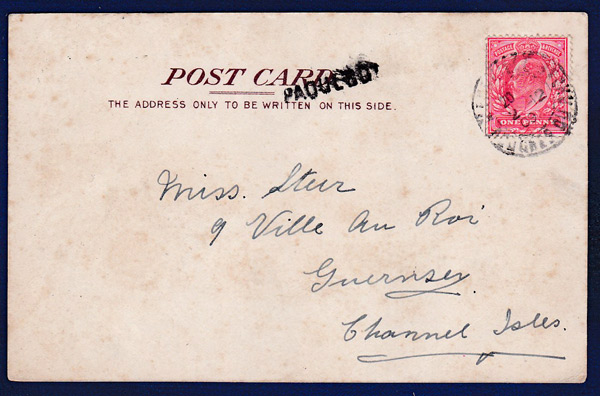 POST CARD
PAQUEBOT
THE ADDRESS ONLY TO BE WRITTEN ON THIS SIDE.
POSTAGE
ONE PENNY
Miss. Steer
9 Ville Au Roi
Guernsey
Channel Isles.